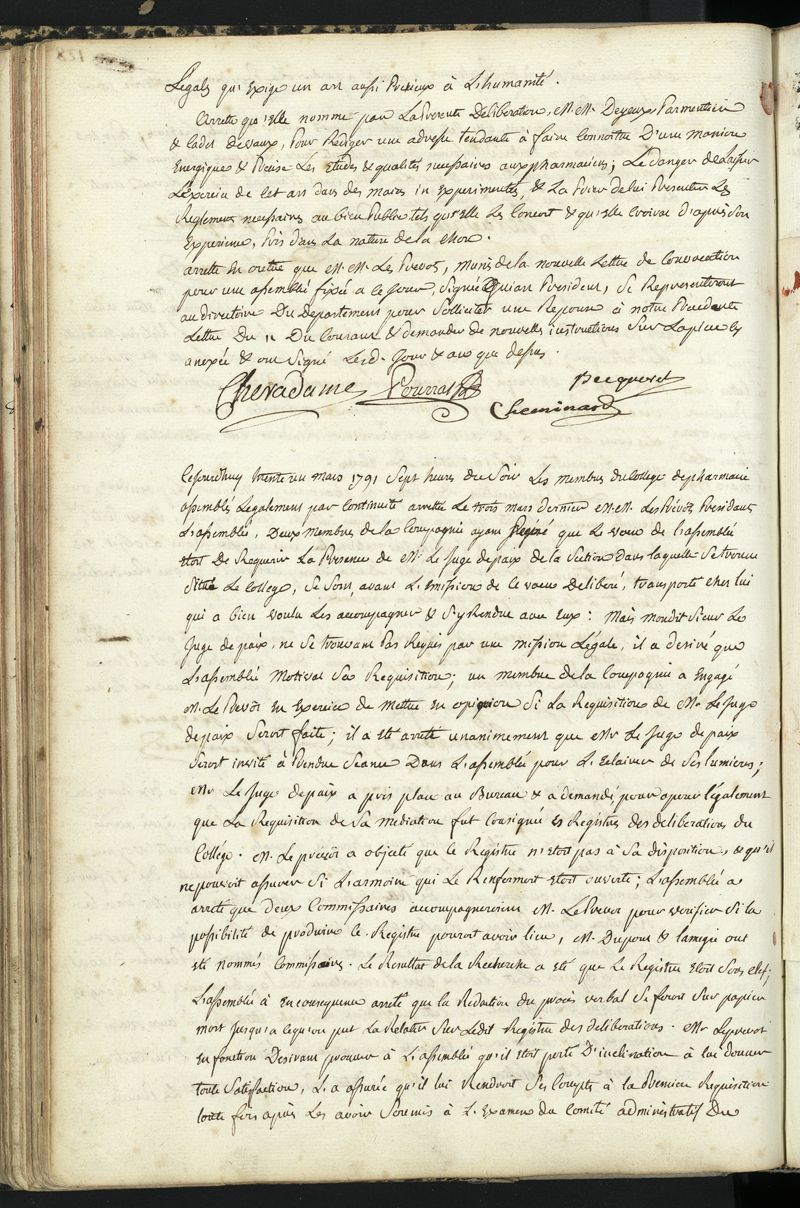 Légales qu'exige un art aussi Précieux à L'humanité.
Arrette qu'elle nomme par La Presente Deliberation, M.M. Deyeux Parmentier
& Cadet Devaux, Pour Rediger une adresse tendante à faire connoitre D'une maniere
Energique & Précise Les Etudes & qualités necessaires aux pharmaciens; Le danger de Laisser
L'exercice de cet art dans des mains in experimentés, & La Prier de lui Presenter Les
Reglemens necessaires au bien Public tels qu'elle Les Conçoit & qu'elle croira d'après son
Experience, Pris dans La nature de la chose.
arrette En outre que M.M. Les Prevots, munis de la nouvelle Lettre de Convocation
pour une assemblé fixée a ce jour, signé President, Se Representeront
au directoire Du Departement pour Solliciter une Reponse à notre Precedente
Lettre Du 11 Du Courant & demander de nouvelles instructions Sur La piece Cy
anexée & ont Signé Lesd. Jour & an que dessus.
Cheradame Pourrat Becqueret
Cheminard
Cejourdhuy trente un mars 1791 Sept heures du Soir Les membres du College de pharmacie
assemblés Légalement par Continuité arrettée Le trois mars dernier M.M. Les Prévôts Presidant
L'assemblée, Deux membres de la Compagnie ayant que Le voeu de L'assemblée
etoit De Requerir La Presence de Mr. Le Juge de paix de la Section dans laquelle Se trouve
Situé Le College, Se Sont, avant L'emission de ce voeu deliberé, transporté chez lui
qui a bien voulu Les accompagner & S'y Rendre avec Eux: Mais mondit Sieur Le
Juge de paix, ne Se trouvant Pas Requis par une mission Légale, il a desiré que
L'assemblée Motivat Sa Requisition; un membre de la Compagnie a Engagé
M. Le Prevôt En Exercice de Mettre En opinion Si La Requisition de Mr. Le Juge
de paix Seroit faite; il a eté arreté unanimement que Mr Le Juge de paix
Seroit invité à Prendre Séance Dans L'assemblée pour L'Eclairer de Ses lumieres;
Mr Le Juge de paix a pris place au Bureau & a demandé, pour opérer légalement
que La Requisition de Sa mediation fut Consignée Es Régistres des deliberations du
Collége. M. Le prevôt a objecté que le Régistre n'etoit pas à Sa disposition, & qu'il
ne pouvoit assurer Si L'armoire qui Le Renfermoit etoit ouverte; L'assemblée a
arreté que deux Commissaires accompagneroient M. Le Prevot pour verifier Si la
possibilité de produire le Régistre pourroit avoir lieu, M. Dupont & lamegie ont
eté nommés Commissaires. Le Resultat de la Recherche a eté que le Régistre etoit Sous clef;
L'assemblée à En consequence arreté que la Rédaction du procès verbal Se feroit Sur papier
mort jusqu'a ce qu'on put La Relater Sur Ledit Régistre des deliberations. Mr Le prevot
en fonction Desirant prouver à L'assemblée qu'il etoit porté D'inclination à lui donner
toute Satisfaction, L'a assurée qu'il lui Rendroit Ses Comptes à la Premiere Requisition
toute fois après Les avoir Soumis à L'Examen du Comité administratif Du